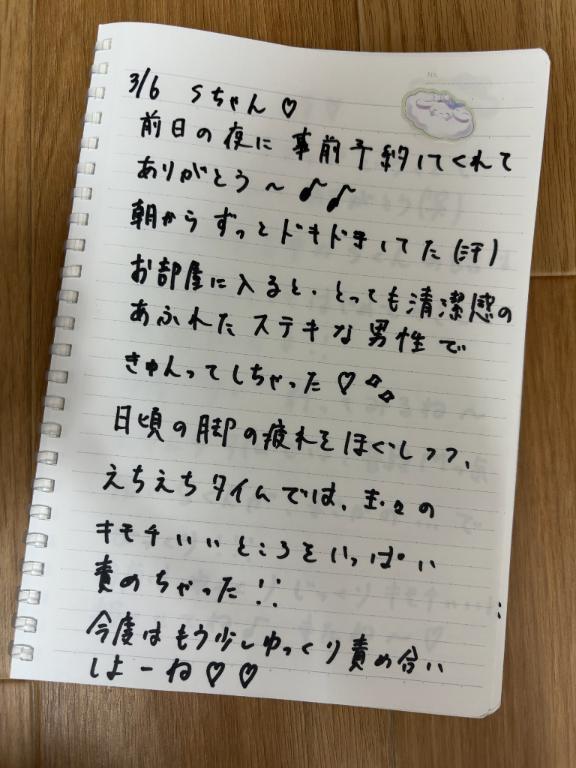 3/6 Sちゃん♡
前日の夜に事前予約してくれて
ありがとう〜♪♪
朝からずっとドキドキしてた(汗)
お部屋に入ると、とっても清潔感の
あふれたステキな男性で
きゅんってしちゃった♡
日頃の脚の疲れをほぐしつつ、
えちえちタイムでは、
キモチいいところをいっぱい
責めちゃった!!
今度はもう少しゆっくり責め合い
しよーね♡♡